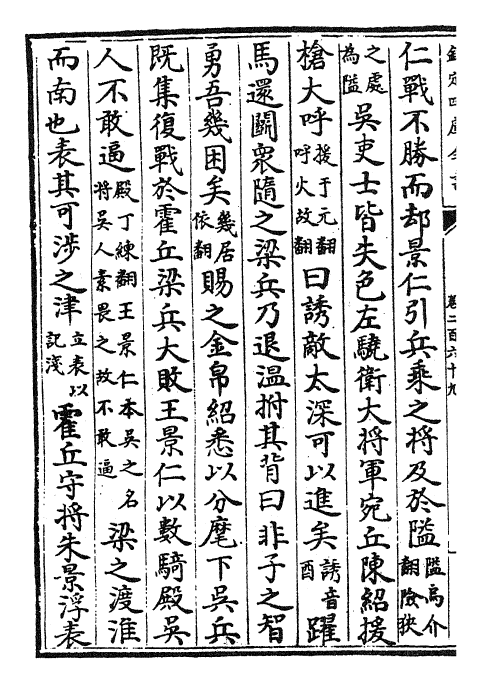 欽定四庫全書
卷二百六十九
仁戰不勝而却景仁引兵乘之將及於隘隘烏介翻險狹
之處為隘吳吏士皆失色左驍衛大將軍宛丘陳紹援
槍大呼援于元翻呼火故翻曰誘敵太深可以進矣誘音酉躍
馬還鬭衆隨之梁兵乃退溫拊其背曰非子之智
勇吾幾困矣幾居依翻賜之金帛紹悉以分麾下吳兵
既集復戰於霍丘梁兵大敗王景仁以數騎殿吳
人不敢逼殿丁練翻王景仁本吳之名將吳人素畏之故不敢逼梁之渡淮
而南也表其可涉之津立表以記淺霍丘守將朱景浮表